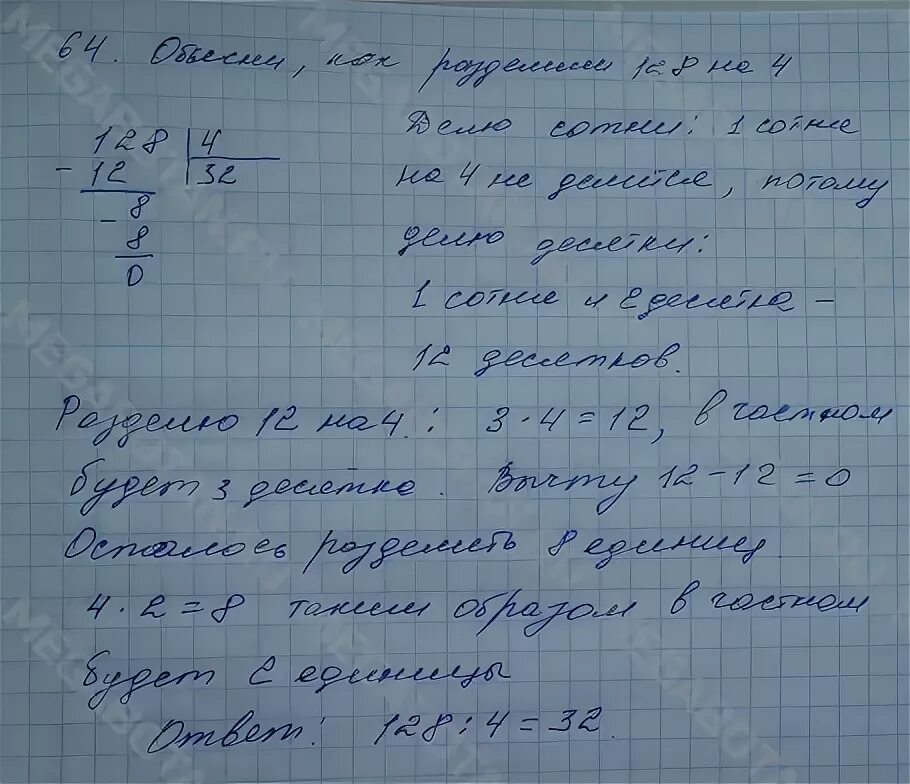 64. Объясни, как разделили 128 на 4
128 | 4
- 12 | 32
- 8
8
0
Делю сотни: 1 сотня
на 4 не делится, потому
делю десятки:
1 сотня и 2 десятка -
12 десятков.
Разделю 12 на 4: 3 · 4 = 12, в частном
будет 3 десятка. Вычту 12 - 12 = 0
Осталось разделить 8 единиц.
4 · 2 = 8 таким образом в частном
будет 2 единицы
Ответ: 128 : 4 = 32.